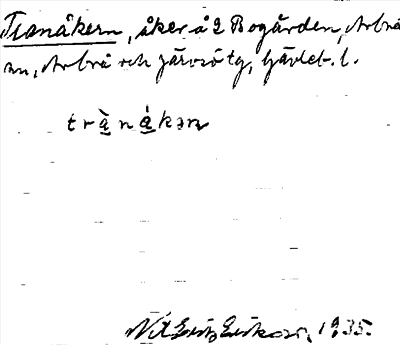 Tranåkern, åker å 2 Bogården, Arbrå
sn, Arbrå och Järvsö tg, Gävleb. l.
trànákɘn
Nils Eriksson, 1935.